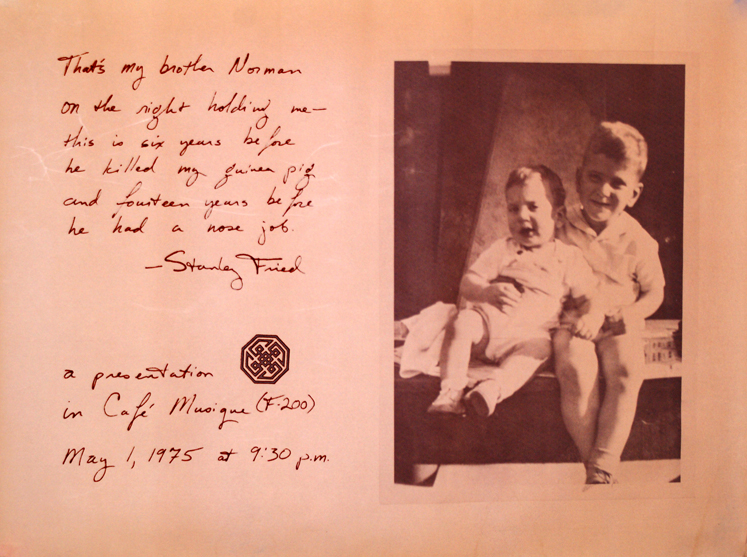 That's my brother Norman
on the right holding me—
this is six years before
he killed my guinea pig
and fourteen years before
he had a nose job.
—Stanley Fried
a presentation
in Café Musique (F·200)
May 1, 1975 at 9:30 p.m.